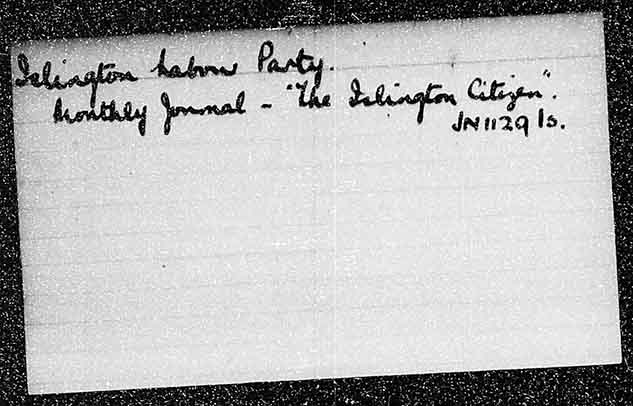 Islington Labour Party.
Monthly Journal - "The Islington Citizen".
JN 1129 Is.